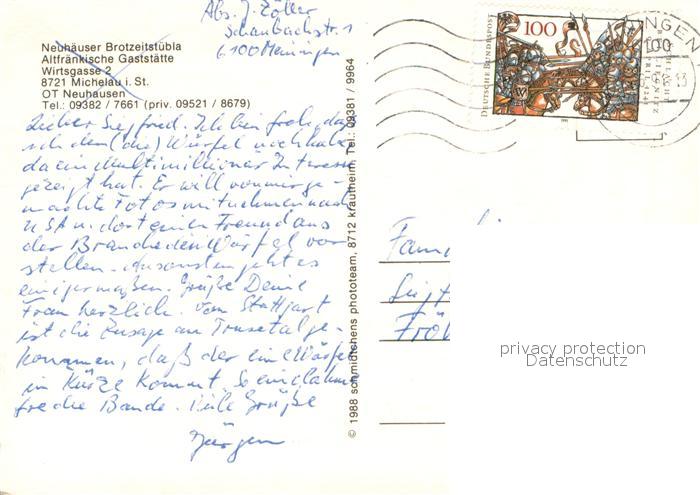 Abs. J. Zöller
Schaubachstr. 1
6100 Meiningen
Neuhäuser Brotzeitstübla
Altfränkische Gaststätte
Wirtsgasse 2
8721 Michelau i. St.
OT Neuhausen
Tel.: 09382 / 7661 (priv. 09521 / 8679)
Lieber Siegfried. Ich bin froh, daß
ich den (die) Würfel noch habe
da ein Multimillionär Interesse
gezeigt hat. Er will von mir ge-
machte Fotos mitnehmen nach
USA u. dort einen Freund aus
der Branche den Würfel vor
stellen. Ansonsten geht es
einigermaßen. Grüße Deine
Frau herzlich. Vom
ist die Zusage an Trusetal ge-
kommen, daß der eine Würfel
in Kürze kommt. So eine lahme
Bande. Viele Grüße
Jürgen
© 1988 schmidtchens phototeam, 8712 krautheim, Tel.: 09381 / 9964
DEUTSCHE BUNDESPOST
100
1991
NGEN
100
Fam
Siegf
Fröh
privacy protection
Datenschutz